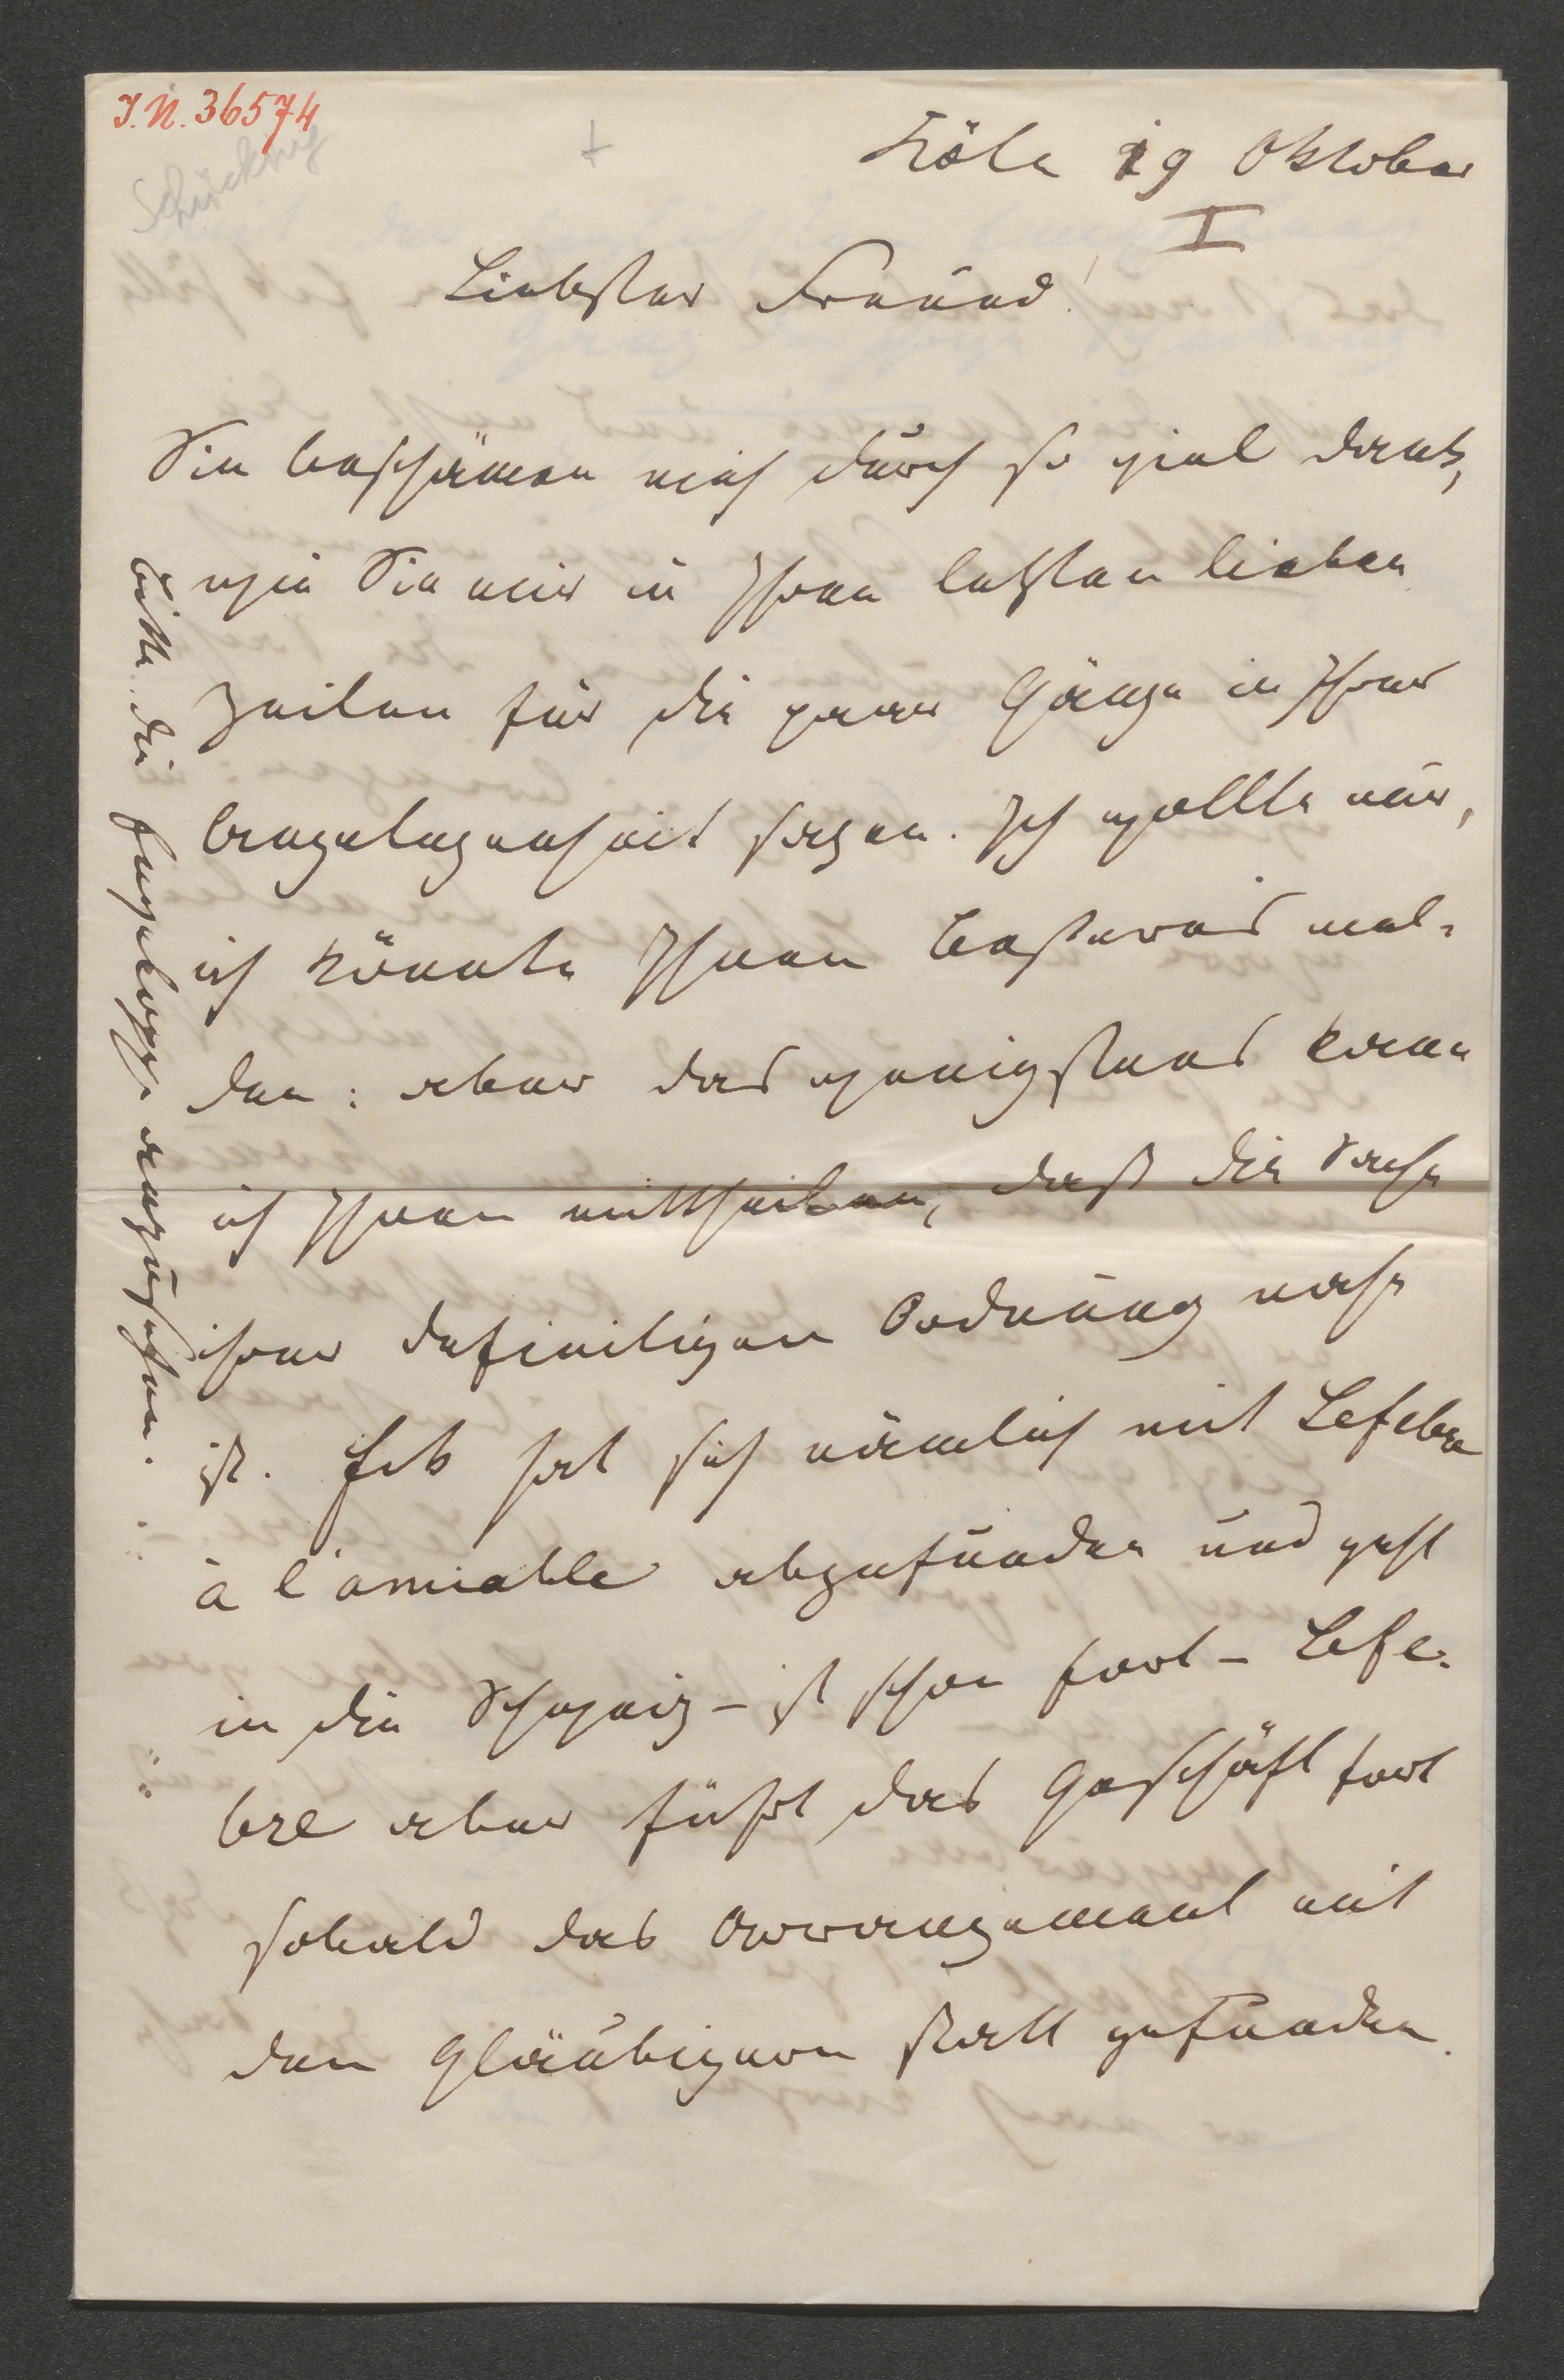 I. N. 36574
Schücking
Köln 19 Oktober
I
Liebster Freund!
Sie beschämen mich durch so viel Dank,
wie Sie mir in Ihren letzten lieben
Zeilen für die paar Gänge in Ihrer
Angelegenheit sagen. Ich wollte nur,
ich könnte Ihnen Besseres mel-
den: aber das wenigstens kann
ich Ihnen mittheilen, daß die Sache
ihrer definitiven Ordnung nahe
ist. hat sich nämlich mit Lefebre
à l'amiable abgefunden und geht
in die Schweiz – ist schon fort – Lefe-
bre aber führt das Geschäft fort
sobald das Arrangement mit
den Gläubigern statt gefunden.
Bitte die Enveloppe anzusehen.